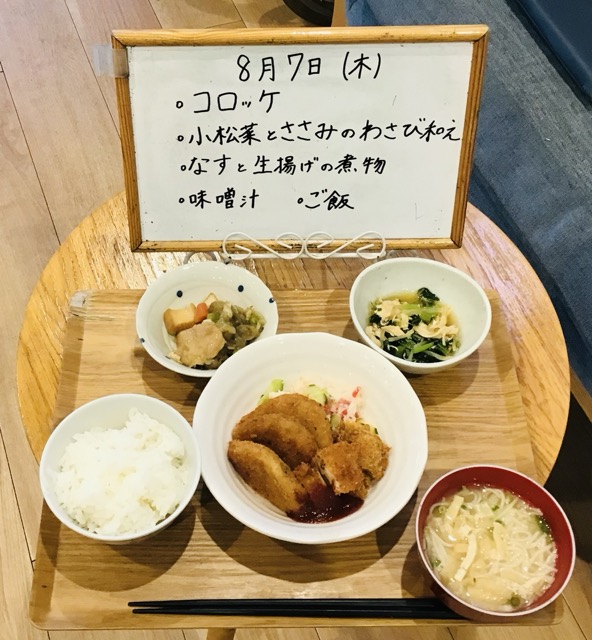 8月7日(木)
。コロッケ
。小松菜とささみのわさび和え
。なすと生揚げの煮物
。味噌汁 。ご飯